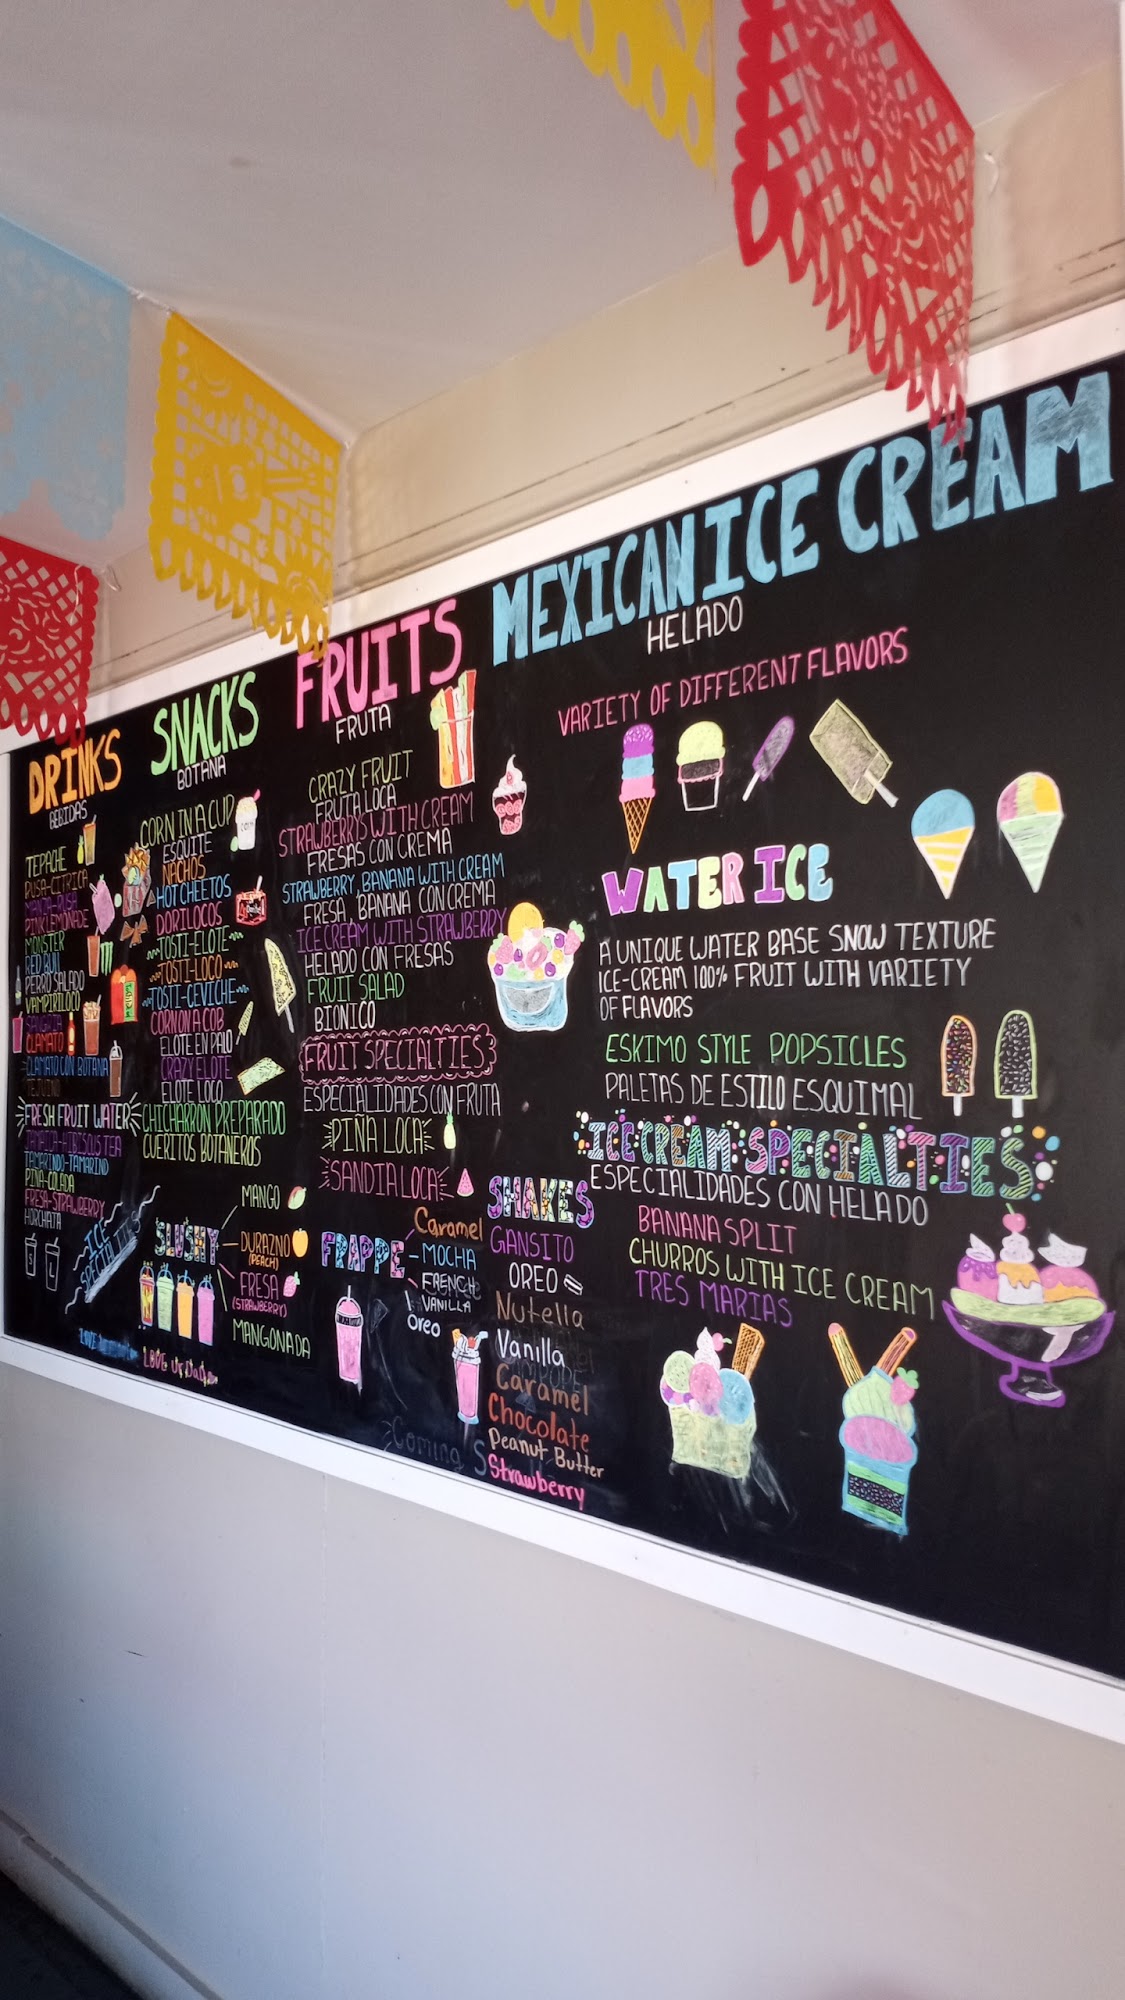 DRINKS
BEBIDAS
TEPACHE
RUSA-CITRICA
MANZA-RUSA
PINK LEMONADE
MONSTER
RED BULL
PERRO SALADO
VAMPIRILOCO
SANGRIA
CLAMATO
CLAMATO CON BOTANA
TEJUINO
FRESH FRUIT WATER
JAMAICA-HIBISCUS TEA
TAMARINDO-TAMARIND
PIÑA-COLADA
FRESA-STRAWBERRY
HORCHATA
ICE
SNACKS
BOTANA
CORN IN A CUP
ESQUITE
NACHOS
HOT CHEETOS
DORILOCOS
TOSTI-ELOTE
TOSTI-LOCO
TOSTI-CEVICHE
CORN ON A COB
ELOTE EN PALO
CRAZY ELOTE
ELOTE LOCO
CHICHARRON PREPARADO
CUERITOS BOTANEROS
SLUSHY
MANGO
DURAZNO
(PEACH)
FRESA
(STRAWBERRY)
MANGONADA
FRUITS
FRUTA
CRAZY FRUIT
FRUTA LOCA
STRAWBERRYS WITH CREAM
FRESAS CON CREMA
STRAWBERRY, BANANA WITH CREAM
FRESA, BANANA CON CREMA
ICE CREAM WITH STRAWBERRY
HELADO CON FRESAS
FRUIT SALAD
BIONICO
FRUIT SPECIALTIES
ESPECIALIDADES CON FRUTA
PIÑA LOCA
SANDIA LOCA
FRAPPE
Caramel
MOCHA
FRENCH
VANILLA
Oreo
Coming S
SHAKES
GANSITO
OREO
Nutella
Vanilla
Caramel
Chocolate
Peanut Butter
Strawberry
MEXICAN ICE CREAM
HELADO
VARIETY OF DIFFERENT FLAVORS
WATER ICE
A UNIQUE WATER BASE SNOW TEXTURE
ICE-CREAM 100% FRUIT WITH VARIETY
OF FLAVORS
ESKIMO STYLE POPSICLES
PALETAS DE ESTILO ESQUIMAL
ICE CREAM SPECIALTIES
ESPECIALIDADES CON HELADO
BANANA SPLIT
CHURROS WITH ICE CREAM
TRES MARIAS